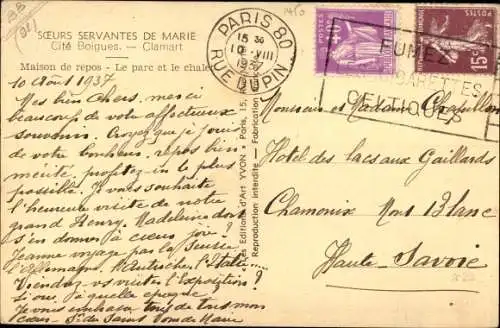 SŒURS SERVANTES DE MARIE
Cité Boigues. — Clamart
Maison de repos - Le parc et le chalet
10 Août 1937
Mes bien chers, merci
beaucoup de votre affectueux
souvenir. Croyez que je jouis
de votre bonheur. repos bien
mérité, profitez-en le plus
possible. Je vous souhaite
l'heureuse visite de notre
grand Henry. Madeleine doit
s'en donner à cœur joie?
Jeanne voyage par la Suisse
l'Allemagne, l'Autriche, l'Italie...
Viendrez vs visiter l'Exposition?
si oui. à quelle époque?
Je vous embrasse tous de tout mon
cœur
Les Editions d'Art YVON - Paris, 15,
Reproduction interdite - Fabrication
PARIS 80
15 30
10 - VIII
1937
RUE DUPIN
FUMEZ
CIGARETTES
CELTIQUES
15c
Monsieur et Madame Chapillon
Hotel des lacs aux Gaillards
Chamonix Mont Blanc
Haute-Savoie